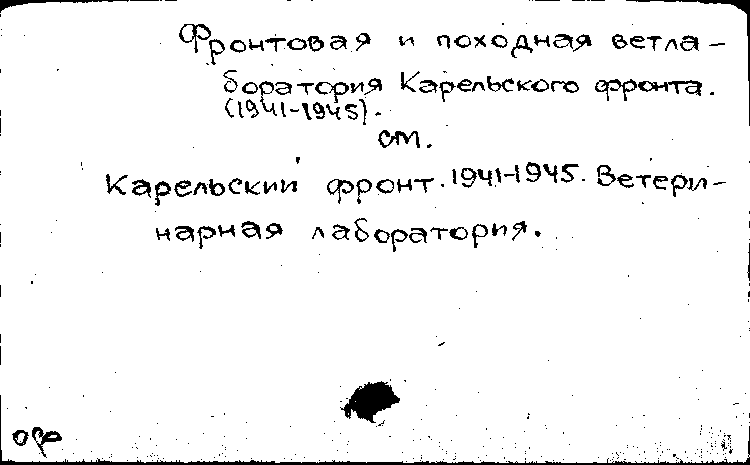 Фронтовая и походная ветла-
боратория Карельского фронта.
(1941-1945).
см.
Карельский фронт. 1941-1945. Ветери-
нарная лаборатория.